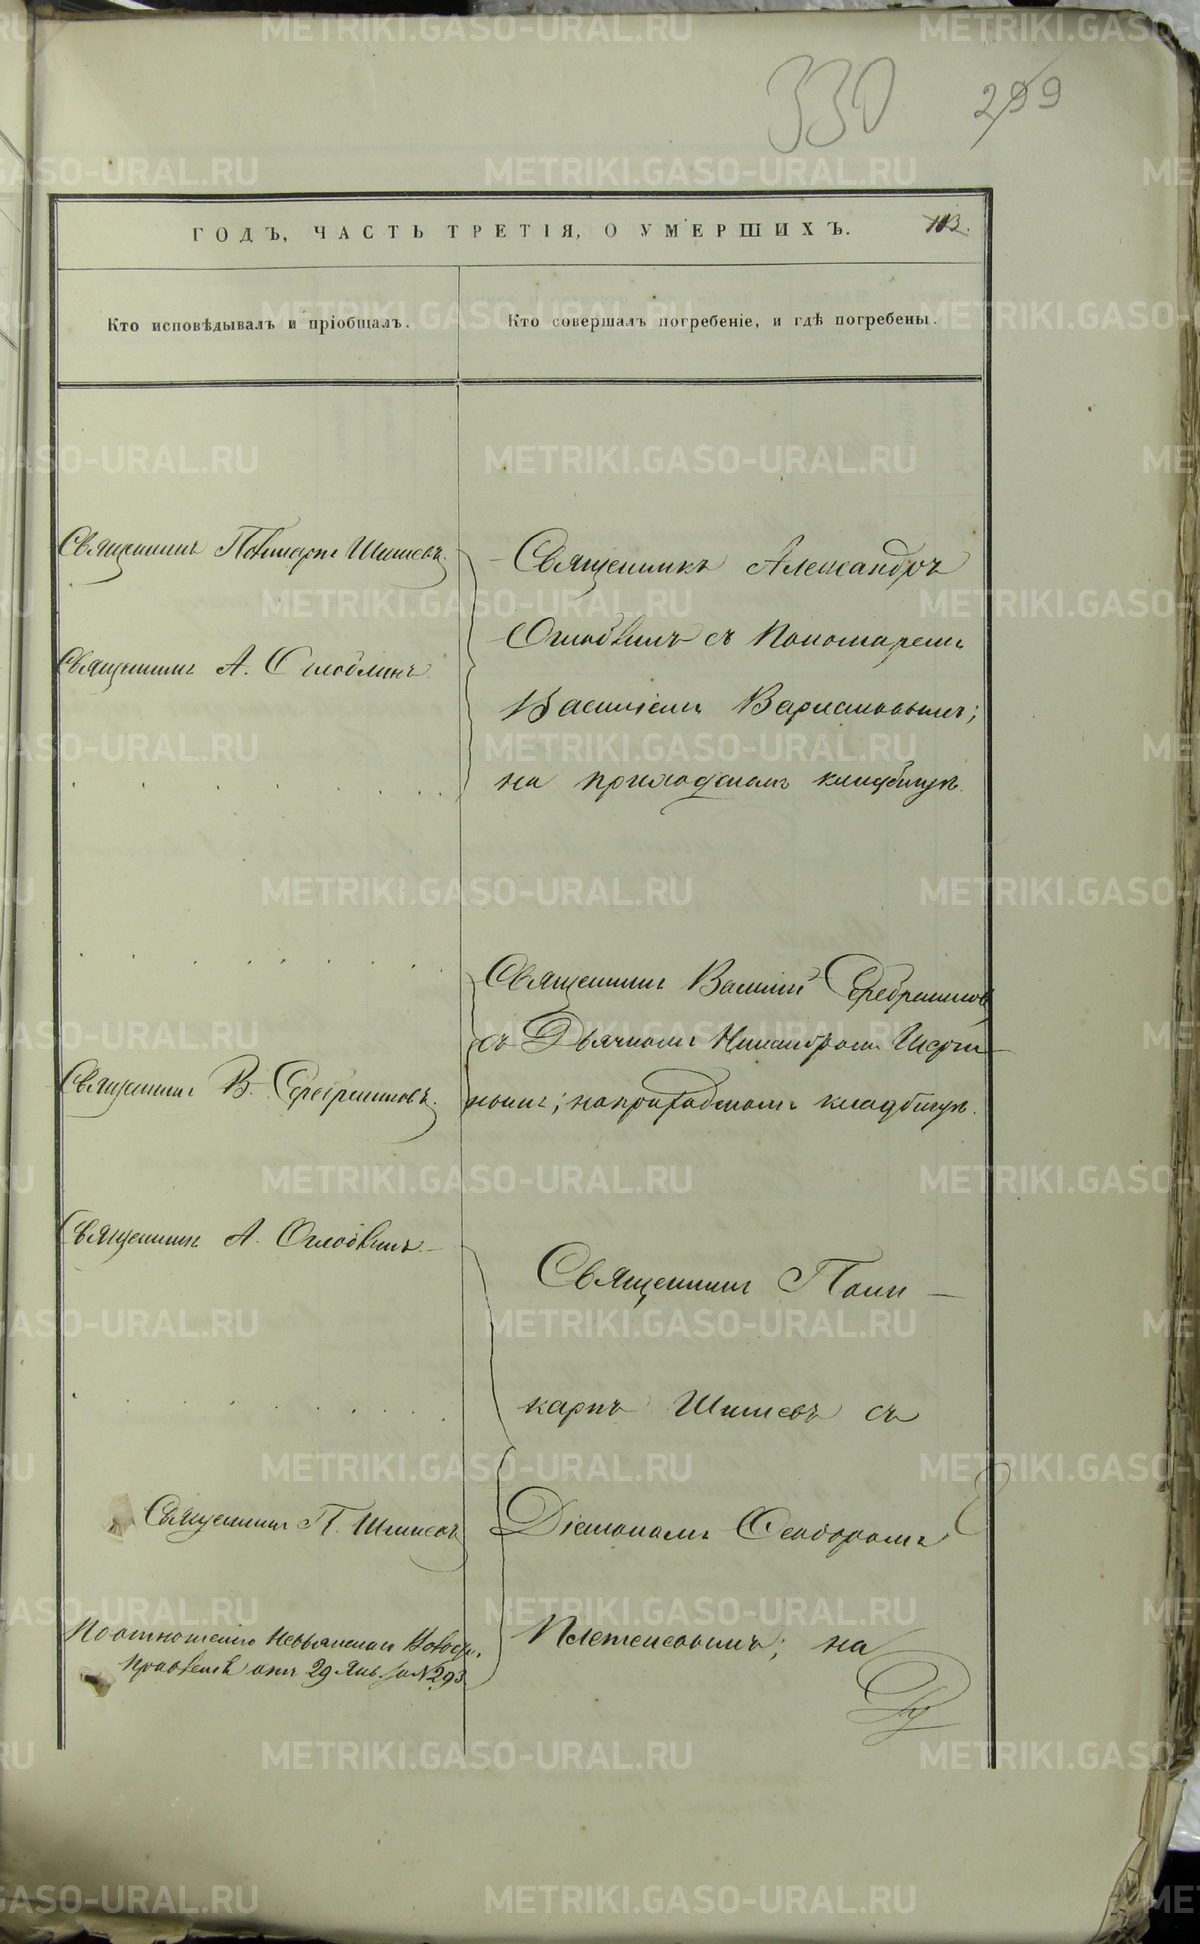 330 299
ГОДЪ, ЧАСТЬ ТРЕТІЯ, О УМЕРШИХЪ. 103.
Кто исповѣдывалъ и пріобщалъ.
Кто совершалъ погребеніе, и гдѣ погребены.
Священникъ Поликарпъ Шишевъ.
Священникъ А. Оглоблинъ.
Священникъ Александръ
Оглоблинъ съ Пономаремъ
Василіемъ Варлаковымъ;
на приходскомъ кладбищѣ.
Священникъ Василій Серебренниковъ
съ Дьячкомъ Никандромъ
нымъ; на приходскомъ кладбищѣ.
Священникъ В. Серебренниковъ.
Священникъ А. Оглоблинъ.
Священникъ Поли-
карпъ Шишевъ съ
Діакономъ Ѳеодоромъ
Плетеневымъ; на
Священникъ П. Шишевъ
По отношенію Невьянскаго
Правленія отъ 29 Янв. за № 293.
METRIKI.GASO-URAL.RU